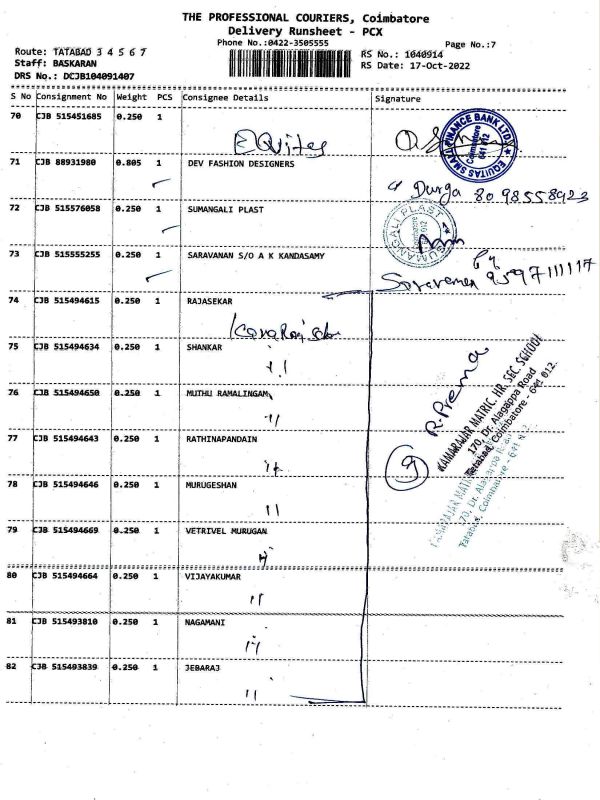 THE PROFESSIONAL COURIERS, Coimbatore
Delivery Runsheet - PCX
Phone No.:0422-3505555
Page No.:7
Route: TATABAD 3 4 5 6 7
Staff: BASKARAN
DRS No.: DCJB104091407
RS No.: 1040914
RS Date: 17-Oct-2022
S No Consignment No Weight PCS Consignee Details Signature
70 CJB 515451685 0.250 1
EQuitas
EQUITAS SMALL FINANCE BANK LTD.
Coimbatore
641 012
71 CJB 88931980 0.805 1 DEV FASHION DESIGNERS
Durga 8098558923
72 CJB 515576058 0.250 1 SUMANGALI PLAST
SUMANGALI PLAST
Coimbatore
012
73 CJB 515555255 0.250 1 SARAVANAN S/O A K KANDASAMY
9597111117
74 CJB 515494615 0.250 1 RAJASEKAR
75 CJB 515494634 0.250 1 SHANKAR
"
76 CJB 515494650 0.250 1 MUTHU RAMALINGAM
"
77 CJB 515494643 0.250 1 RATHINAPANDAIN
"
78 CJB 515494646 0.250 1 MURUGESHAN
"
79 CJB 515494669 0.250 1 VETRIVEL MURUGAN
"
80 CJB 515494664 0.250 1 VIJAYAKUMAR
"
81 CJB 515493810 0.250 1 NAGAMANI
"
82 CJB 515493839 0.250 1 JEBARAJ
"
R. Prema
9
KAMARAJAR MATRIC. HR. SEC. SCHOOL
170, Dr. Alagappa Road
Tatabad, Coimbatore - 641 012.
KAMARAJAR MATRIC
170, Dr. Alagappa Road
Tatabad, Coimbatore - 641 012